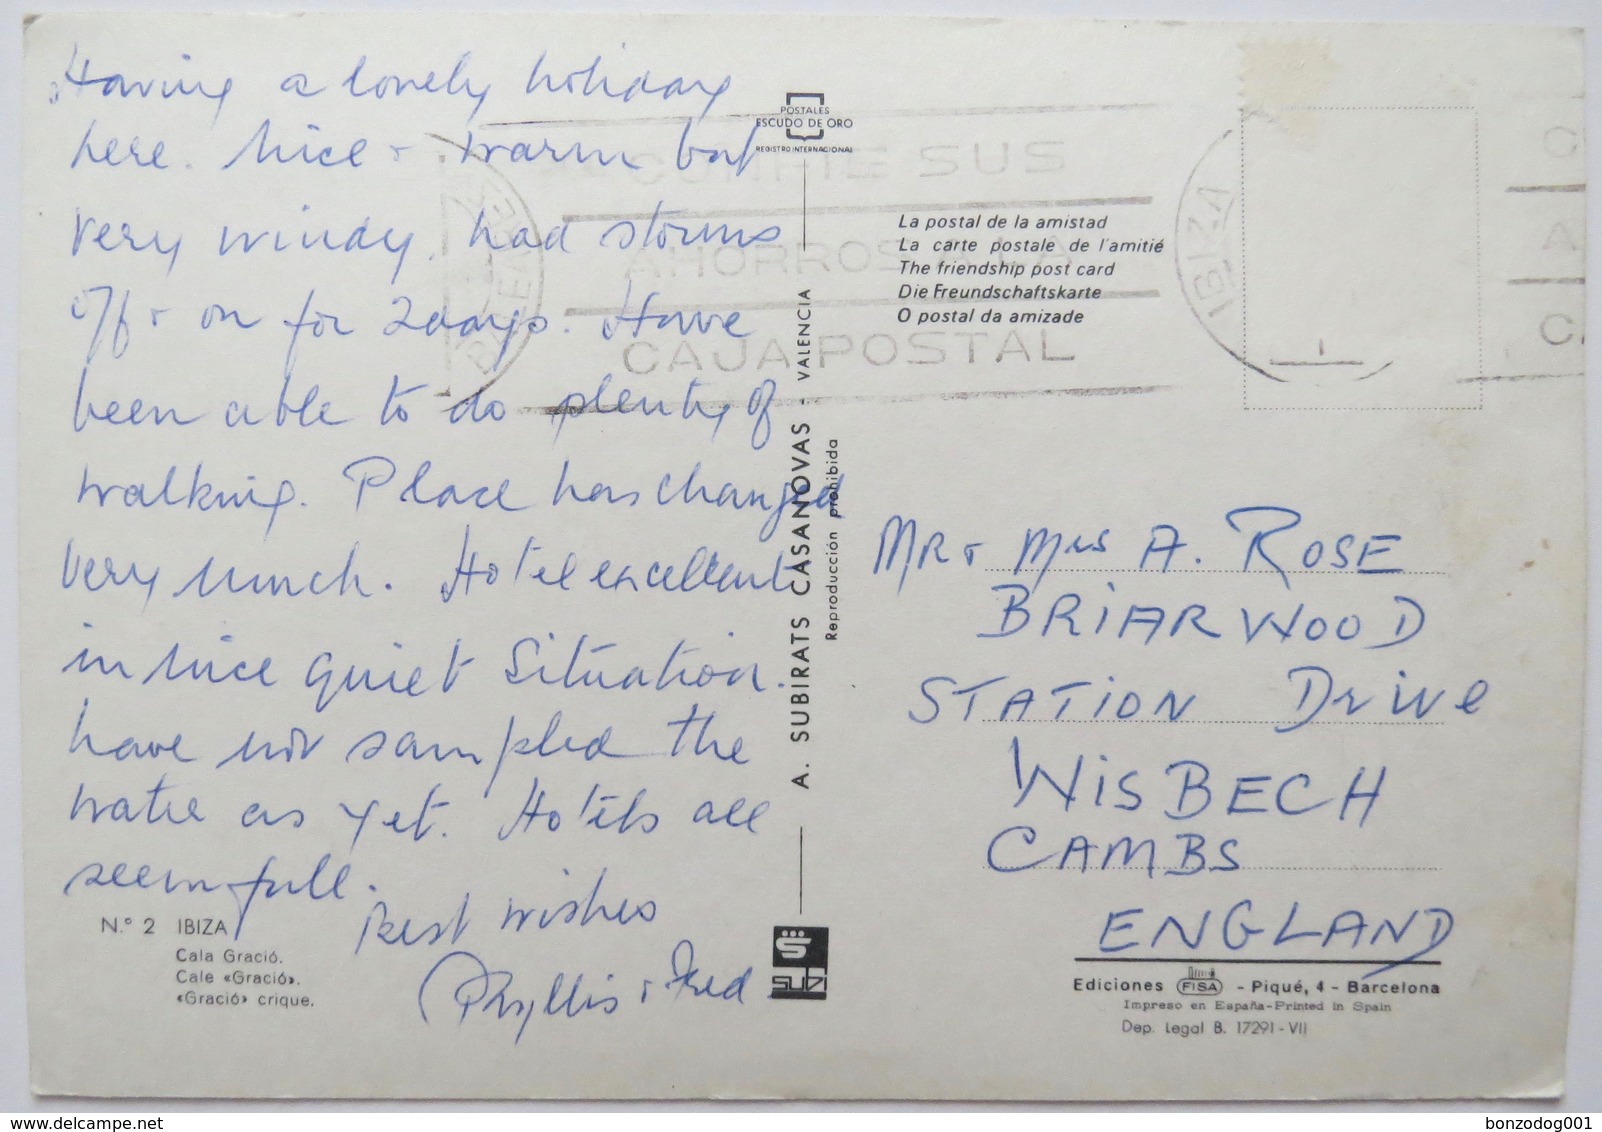 Having a lovely holiday
here. Nice + warm but
very windy, had storms
off + on for 2 days. Have
been able to do plenty of
walking. Place has changed
very much. Hotel excellent
in nice quiet situation.
have not sampled the
water as yet. Hotels all
seem full.
Best wishes
Phyllis + Fred
N.º 2 IBIZA
Cala Gració.
Cale «Gració».
«Gració» crique.
POSTALES
ESCUDO DE ORO
REGISTRO INTERNACIONAL
A. SUBIRATS CASANOVAS - VALENCIA
Reproducción prohibida
subi
La postal de la amistad
La carte postale de l'amitié
The friendship post card
Die Freundschaftskarte
O postal da amizade
SUS
AHORROS A LA
CAJA POSTAL
BALEARES
IBIZA
C
A
CA
MR + Mrs A. ROSE
BRIARWOOD
STATION Drive
WISBECH
CAMBS
ENGLAND
Ediciones FISA - Piqué, 4 - Barcelona
Impreso en España-Printed in Spain
Dep. Legal B. 17291 - VII
bonzodog001